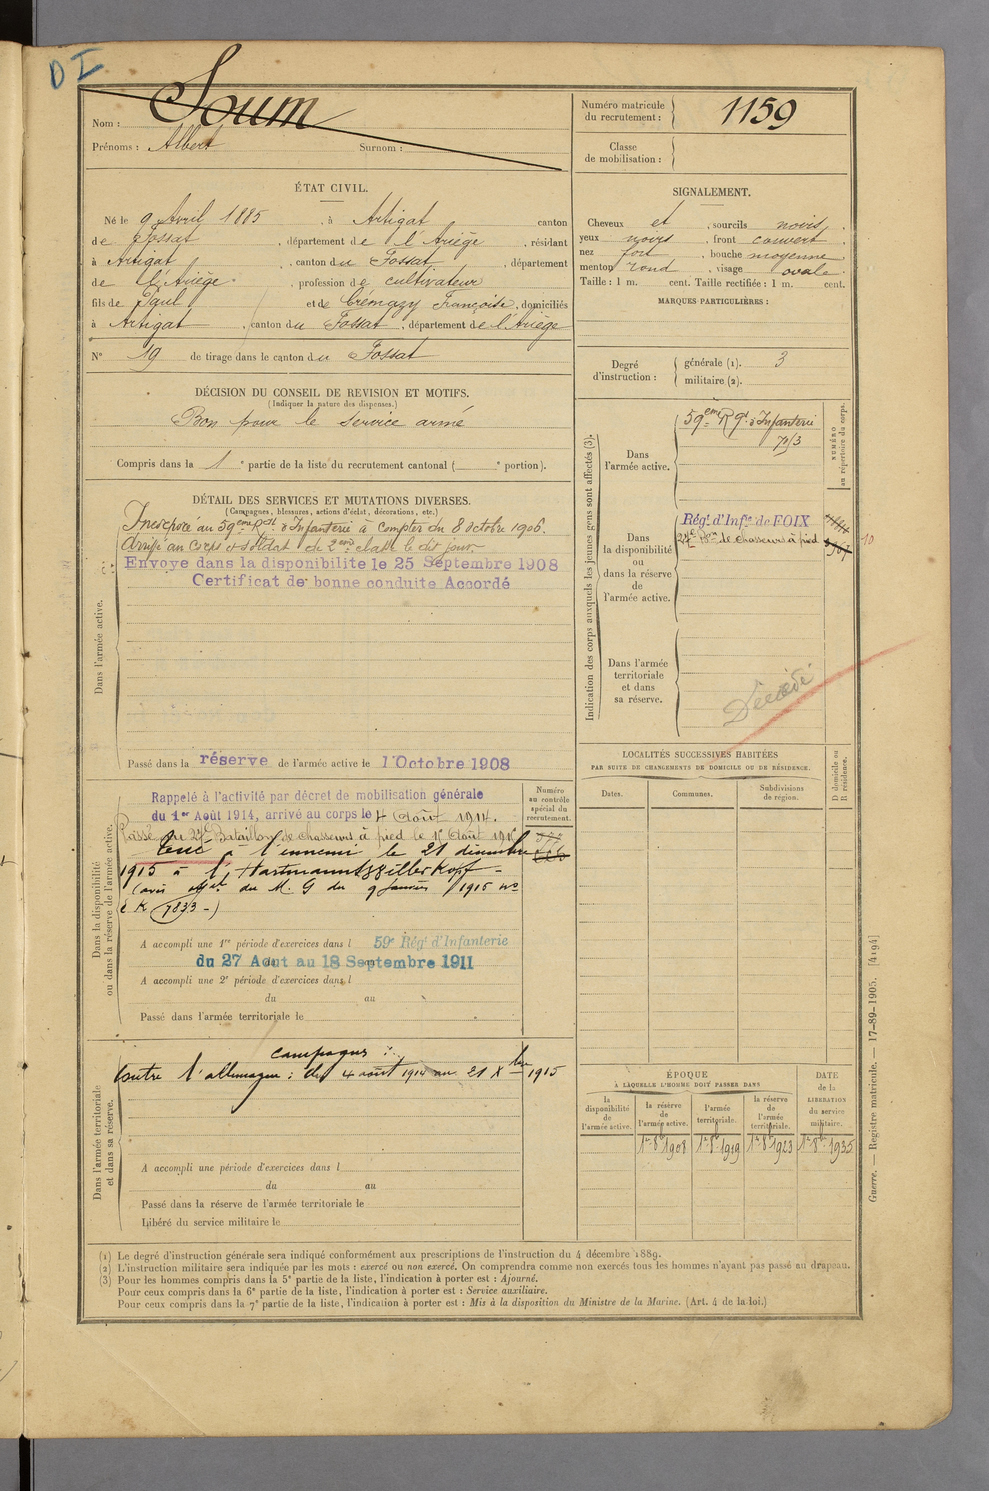 D I
Nom : Soum
Prénoms : Albert Surnom :
Numéro matricule
du recrutement : 1159
Classe
de mobilisation :
ÉTAT CIVIL.
Né le 9 Avril 1885, à Artigat canton
de Fossat, département de l'Ariège, résidant
à Artigat, canton du Fossat, département
de l'Ariège, profession de cultivateur
fils de Paul et de Crémazy Françoise, domiciliés
à Artigat, canton du Fossat, département de l'Ariège
N° 19 de tirage dans le canton du Fossat
SIGNALEMENT.
Cheveux et, sourcils noirs.
yeux noirs, front couvert
nez fort, bouche moyenne
menton rond, visage ovale.
Taille : 1 m. cent. Taille rectifiée : 1 m. cent.
MARQUES PARTICULIÈRES :
Degré
d'instruction :
générale (1). 3
militaire (2).
DÉCISION DU CONSEIL DE REVISION ET MOTIFS.
(Indiquer la nature des dispenses.)
Bon pour le service armé
Compris dans la 1e partie de la liste du recrutement cantonal ( e portion).
DÉTAIL DES SERVICES ET MUTATIONS DIVERSES.
(Campagnes, blessures, actions d'éclat, décorations, etc.)
Dans l'armée active.
Incorporé au 59eme Rgt d'Infanterie à compter du 8 octobre 1906.
Arrivé au Corps et soldat de 2eme classe le dit jour
Envoye dans la disponibilite le 25 Septembre 1908
Certificat de bonne conduite Accordé
Passé dans la réserve de l'armée active le 1 Octobre 1908
Indication des corps auxquels les jeunes gens sont affectés (3).
NUMÉRO
au répertoire du corps.
Dans
l'armée active.
59eme Rgt d'Infanterie
Dans
la disponibilité
ou
dans la réserve
de
l'armée active.
Régt d'Infie de FOIX
24e Bon de chasseurs à pied
10
Dans l'armée
territoriale
et dans
sa réserve.
Décédé
Dans la disponibilité
ou dans la réserve de l'armée active.
Numéro
au contrôle
spécial du
recrutement.
Rappelé à l'activité par décret de mobilisation générale
du 1er Août 1914, arrivé au corps le 4 Août 1914.
Passé au 24e Bataillon de chasseurs à pied le 1e Août 1915
Tué à l'ennemi le 21 décembre
1915 à l'Hartmannswillerkopf
(avis du M. G du 9 Janvier 1915 no
K 7833)
A accompli une 1re période d'exercices dans l 59e Régt d'Infanterie
du 27 Aout au 18 Septembre 1911
A accompli une 2e période d'exercices dans l
du au
Passé dans l'armée territoriale le
LOCALITÉS SUCCESSIVES HABITÉES
PAR SUITE DE CHANGEMENTS DE DOMICILE OU DE RÉSIDENCE.
Dates. Communes. Subdivisions
de région.
D domicile ou
R résidence.
Dans l'armée territoriale
et dans sa réserve.
campagnes :
Contre l'allemagne : du 4 août 1914 au 21 Xbre 1915
A accompli une période d'exercices dans l
du au
Passé dans la réserve de l'armée territoriale le
Libéré du service militaire le
ÉPOQUE
À LAQUELLE L'HOMME DOIT PASSER DANS
DATE
de la
LIBÉRATION
du service
militaire.
la
disponibilité
de
l'armée active.
la réserve
de
l'armée active.
l'armée
territoriale.
la réserve
de
l'armée
territoriale.
1er 8bre 1908 1er 8bre 1919 1er 8bre 1923 1er 8bre 1935
Guerre. — Registre matricule. — 17-89-1905. [4194]
(1) Le degré d'instruction générale sera indiqué conformément aux prescriptions de l'instruction du 4 décembre 1889.
(2) L'instruction militaire sera indiquée par les mots : exercé ou non exercé. On comprendra comme non exercés tous les hommes n'ayant pas passé au drapeau.
(3) Pour les hommes compris dans la 5e partie de la liste, l'indication à porter est : Ajourné.
Pour ceux compris dans la 6e partie de la liste, l'indication à porter est : Service auxiliaire.
Pour ceux compris dans la 7e partie de la liste, l'indication à porter est : Mis à la disposition du Ministre de la Marine. (Art. 4 de la loi.)